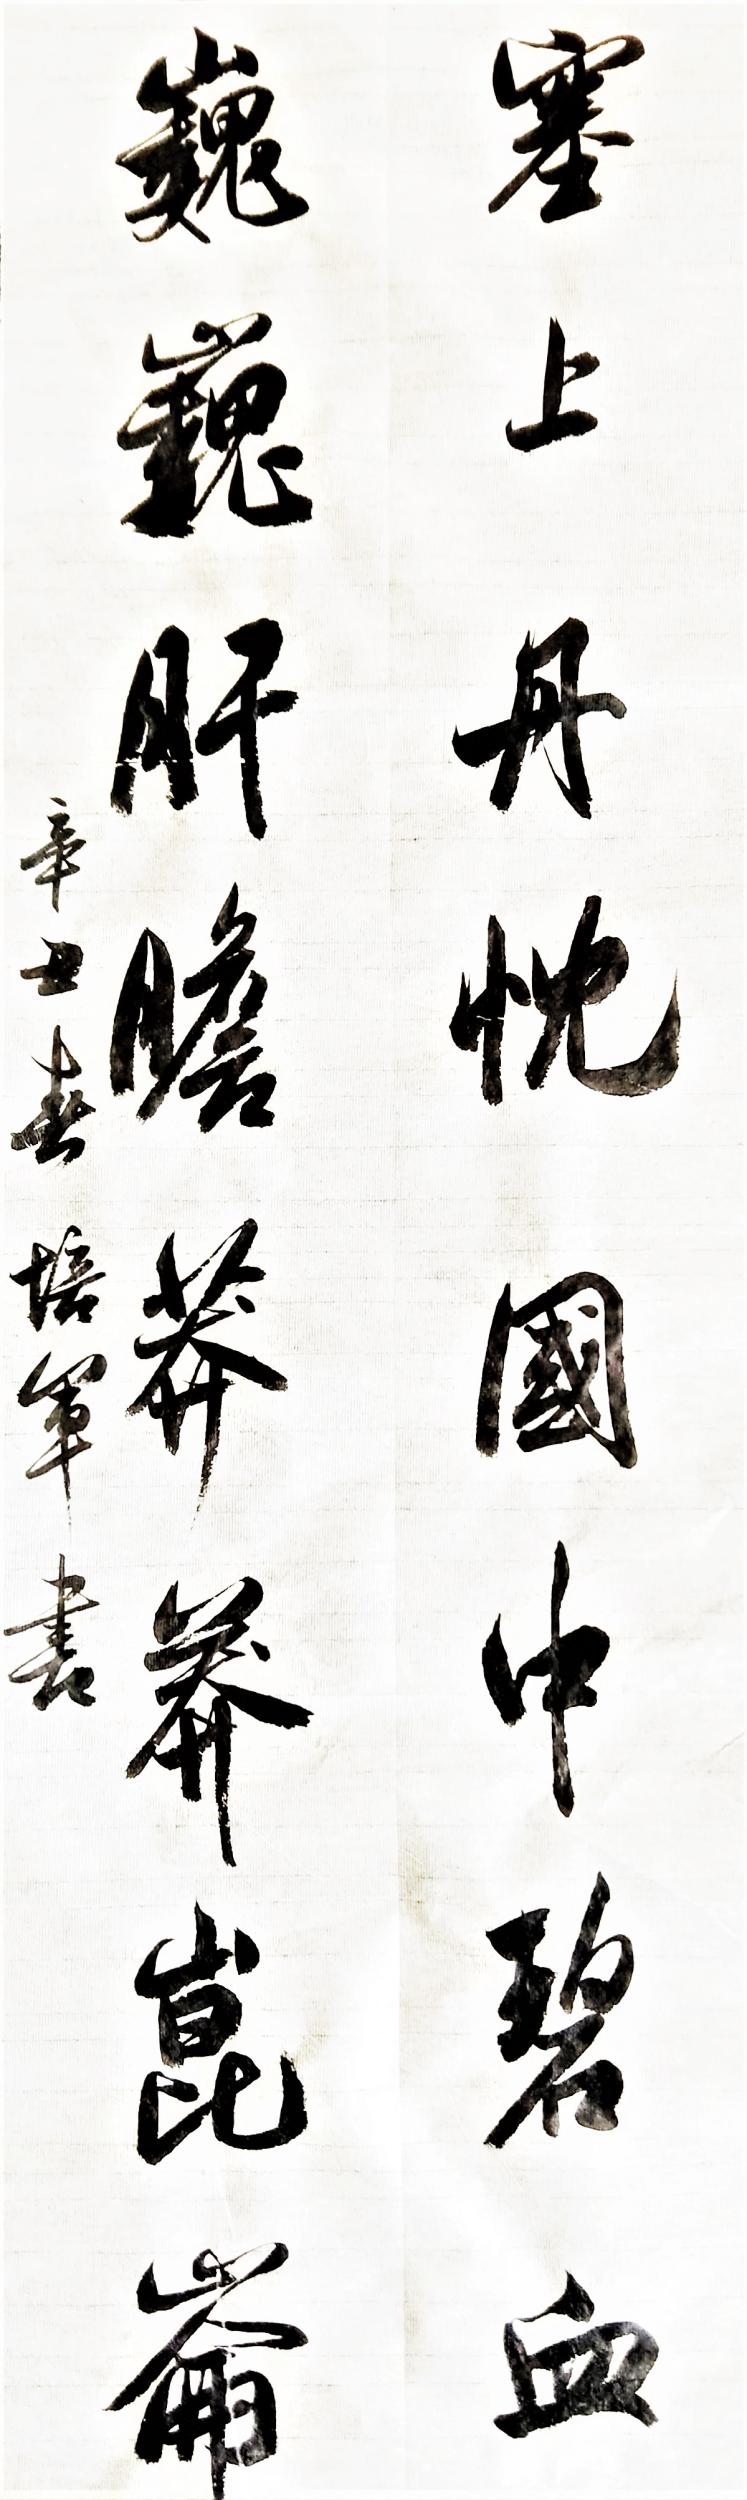 塞上丹忱國中碧血
巍巍肝膽莽莽崑崙
辛丑春培軍書